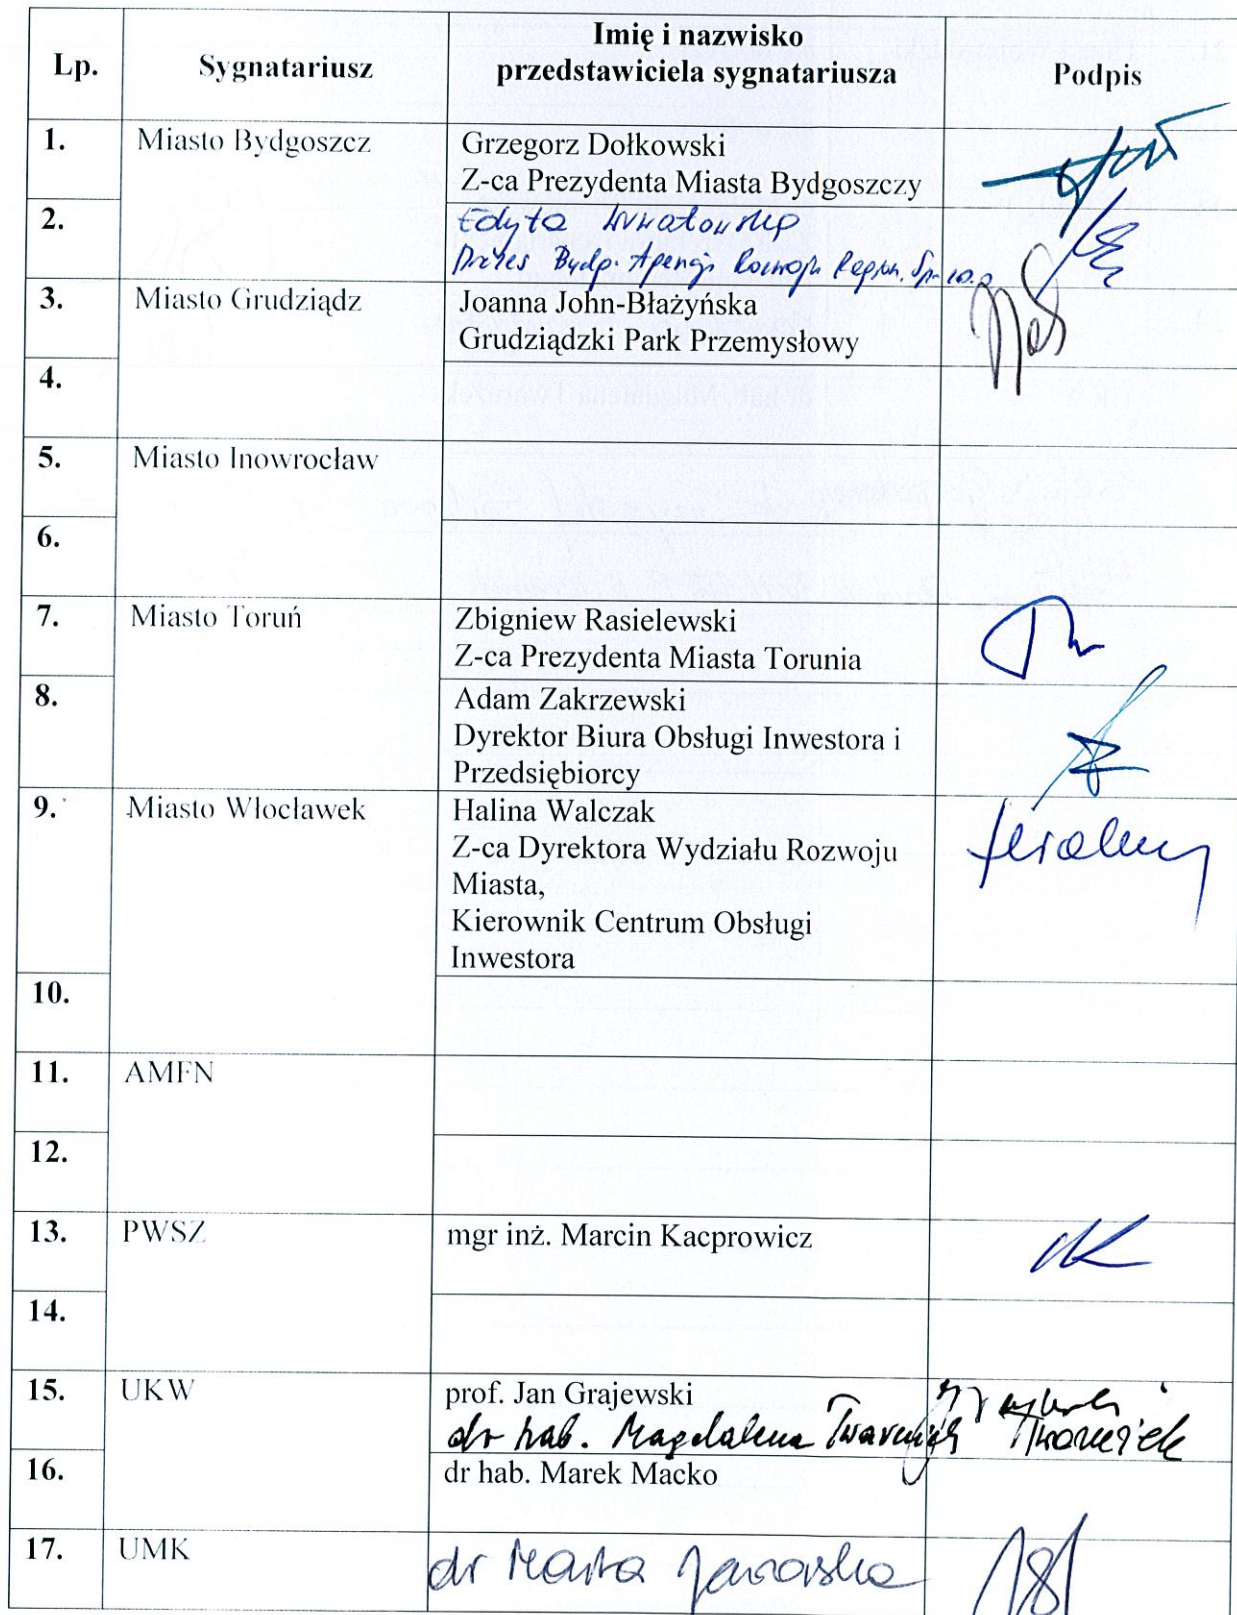 Lp.
Sygnatariusz
Imię i nazwisko
przedstawiciela sygnatariusza
Podpis
1.
Miasto Bydgoszcz
Grzegorz Dołkowski
Z-ca Prezydenta Miasta Bydgoszczy
2.
Edyta
Prezes Bydg. Agencji Rozwoju Region. Sp. z o.o.
3.
Miasto Grudziądz
Joanna John-Błażyńska
Grudziądzki Park Przemysłowy
4.
5.
Miasto Inowrocław
6.
7.
Miasto Toruń
Zbigniew Rasielewski
Z-ca Prezydenta Miasta Torunia
8.
Adam Zakrzewski
Dyrektor Biura Obsługi Inwestora i
Przedsiębiorcy
9.
Miasto Włocławek
Halina Walczak
Z-ca Dyrektora Wydziału Rozwoju
Miasta,
Kierownik Centrum Obsługi
Inwestora
10.
11.
AMFN
12.
13.
PWSZ
mgr inż. Marcin Kacprowicz
14.
15.
UKW
prof. Jan Grajewski
dr hab. Magdalena Twarużek Twarużek
16.
dr hab. Marek Macko
17.
UMK
dr Marta